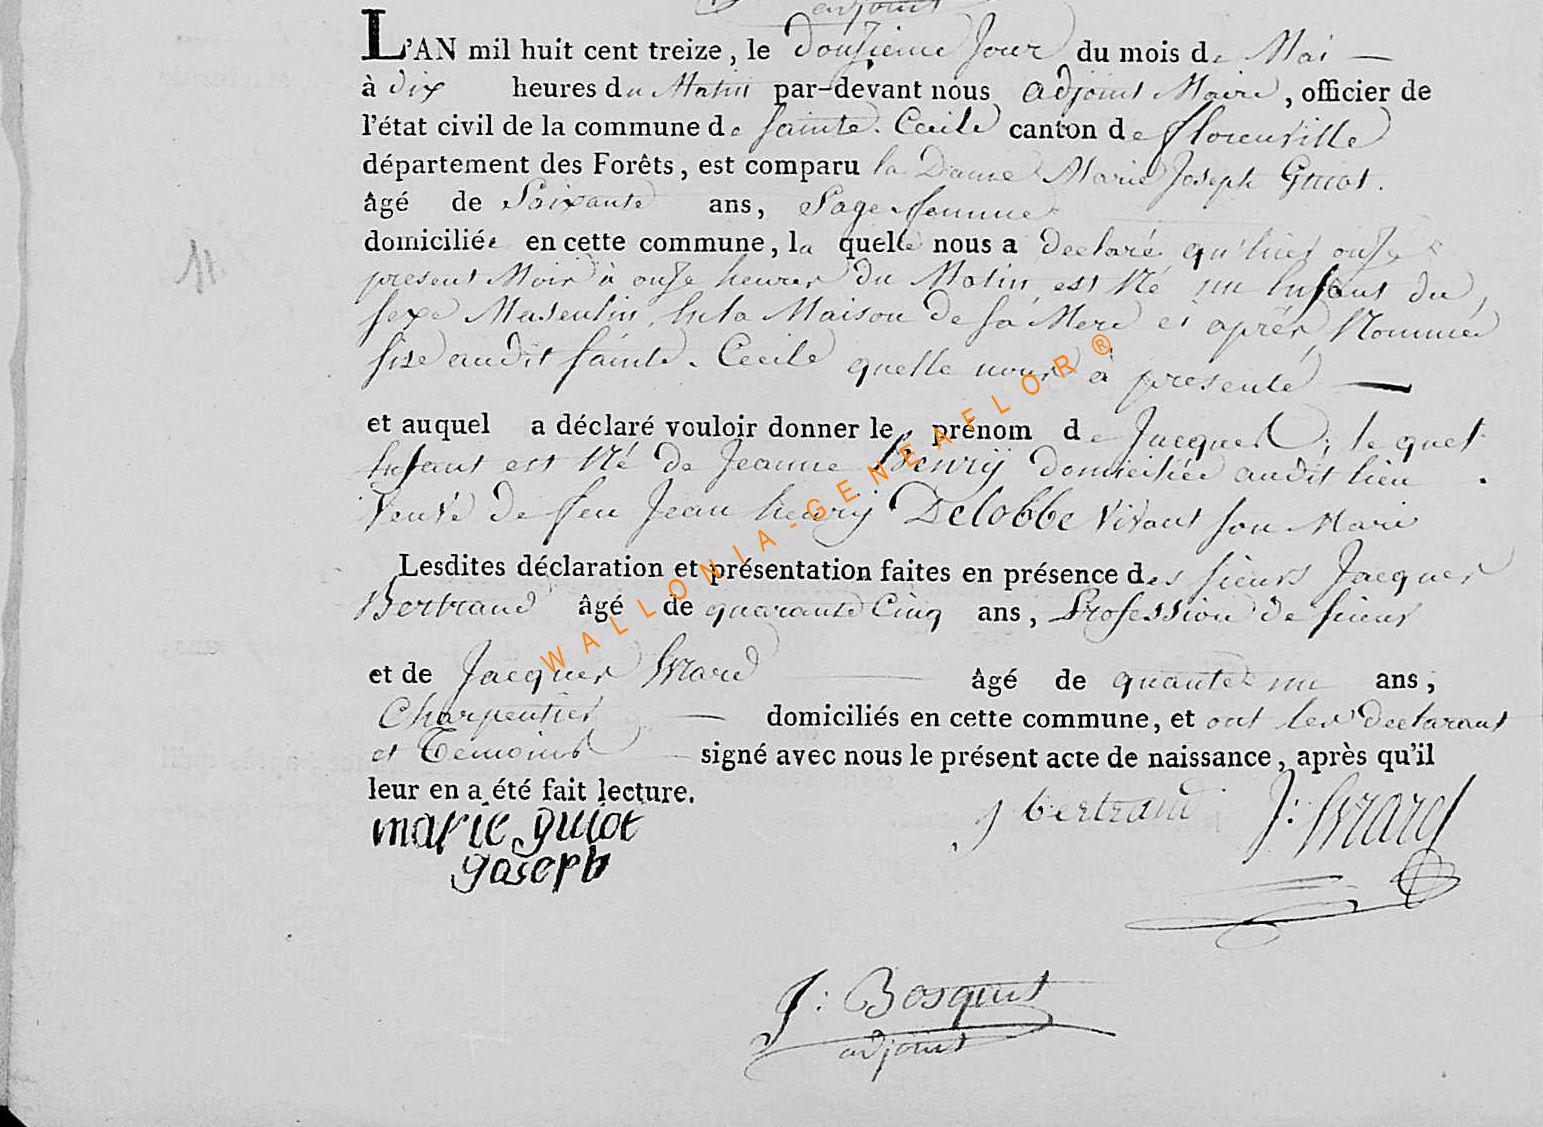 adjoint
L'AN mil huit cent treize, le douzieme Jour du mois de Mai
à dix heures du Matin par-devant nous adjoint Maire, officier de
l'état civil de la commune de Sainte. Cecile canton de florenville
département des Forêts, est comparu la Dame Marie Joseph Guiot.
âgé de Soixante ans, Sage femme
domiciliée en cette commune, la quelle nous a declaré qu'hier onze
present Mois à onze heures du Matin est Né un Enfant du
sexe Masculin, En la Maison de sa Mere ci après Nommée
sise audit Sainte. Cecile quelle nous à presenté
et auquel a déclaré vouloir donner le prénom de Jacques; le quel
Enfant est Né de Jeanne Henrij domiciliée audit lieu
Veuve de feu Jean henrij Delobbe Vivant son Mari
Lesdites déclaration et présentation faites en présence des sieurs Jacques
Bertrand âgé de quarante Cinq ans, Profession de sieur
et de Jacques Evrard âgé de quante un ans,
Charpentier domiciliés en cette commune, et ont les declarant
et Temoins signé avec nous le présent acte de naissance, après qu'il
leur en a été fait lecture.
marie guiot
goseph
J bertrand J: Evrard
J: Bosquet
adjoint
11.
WALLONIA-GENEAFLOR ®